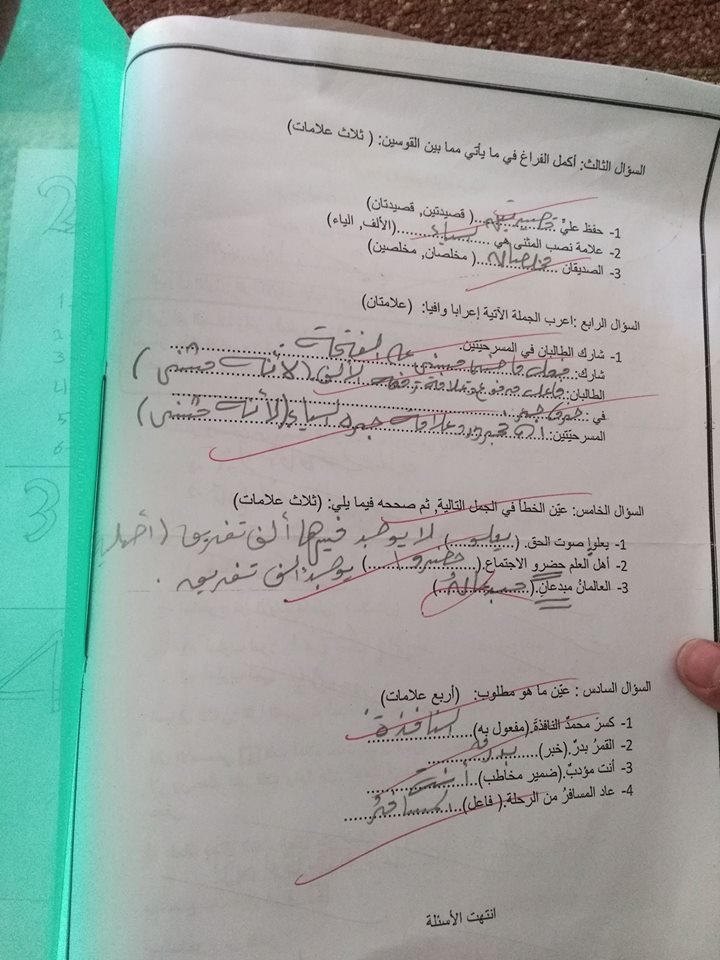 السؤال الثالث: أكمل الفراغ في ما يأتي مما بين القوسين: ( ثلاث علامات)
1- حفظ عليٌّ قصيدتين ( قصيدتين, قصيدتان)
2- علامة نصب المثنى هي الياء (الألف, الياء)
3- الصديقان مخلصان ( مخلصان, مخلصين)
السؤال الرابع :اعرب الجملة الآتية إعرابا وافيا: (علامتان)
1- شارك الطالبان في المسرحيّتين.
شارك: فعل ماضي مبني على الفتحة
الطالبان: فاعل مرفوع وعلامة رفعه الألف (لأنه مثنى)
في : حرف جر
المسرحيّتين: اسم مجرور وعلامة جره الياء (لأنه مثنى)
السؤال الخامس: عيّن الخطأ في الجمل التالية, ثم صححه فيما يلي: (ثلاث علامات)
1- يعلوا صوت الحق. (يعلو) لا يوجد فيها ألف تفريق (أصلية
2- أهل العلم حضرو الاجتماع.(حضروا) يوجد ألف تفريق.
3- العالمانُ مبدعانِ.()
السؤال السادس : عيّن ما هو مطلوب: (أربع علامات)
1- كسرَ محمدٌ النافذةَ.(مفعول به) النافذة
2- القمرُ بدرٌ.(خبر) بدر
3- أنت مؤدبٌ.(ضمير مخاطب) أنت
4- عاد المسافرُ من الرحلة.( فاعل) المسافرُ
انتهت الأسئلة
2
1
2
3
4
5
6-
3
4